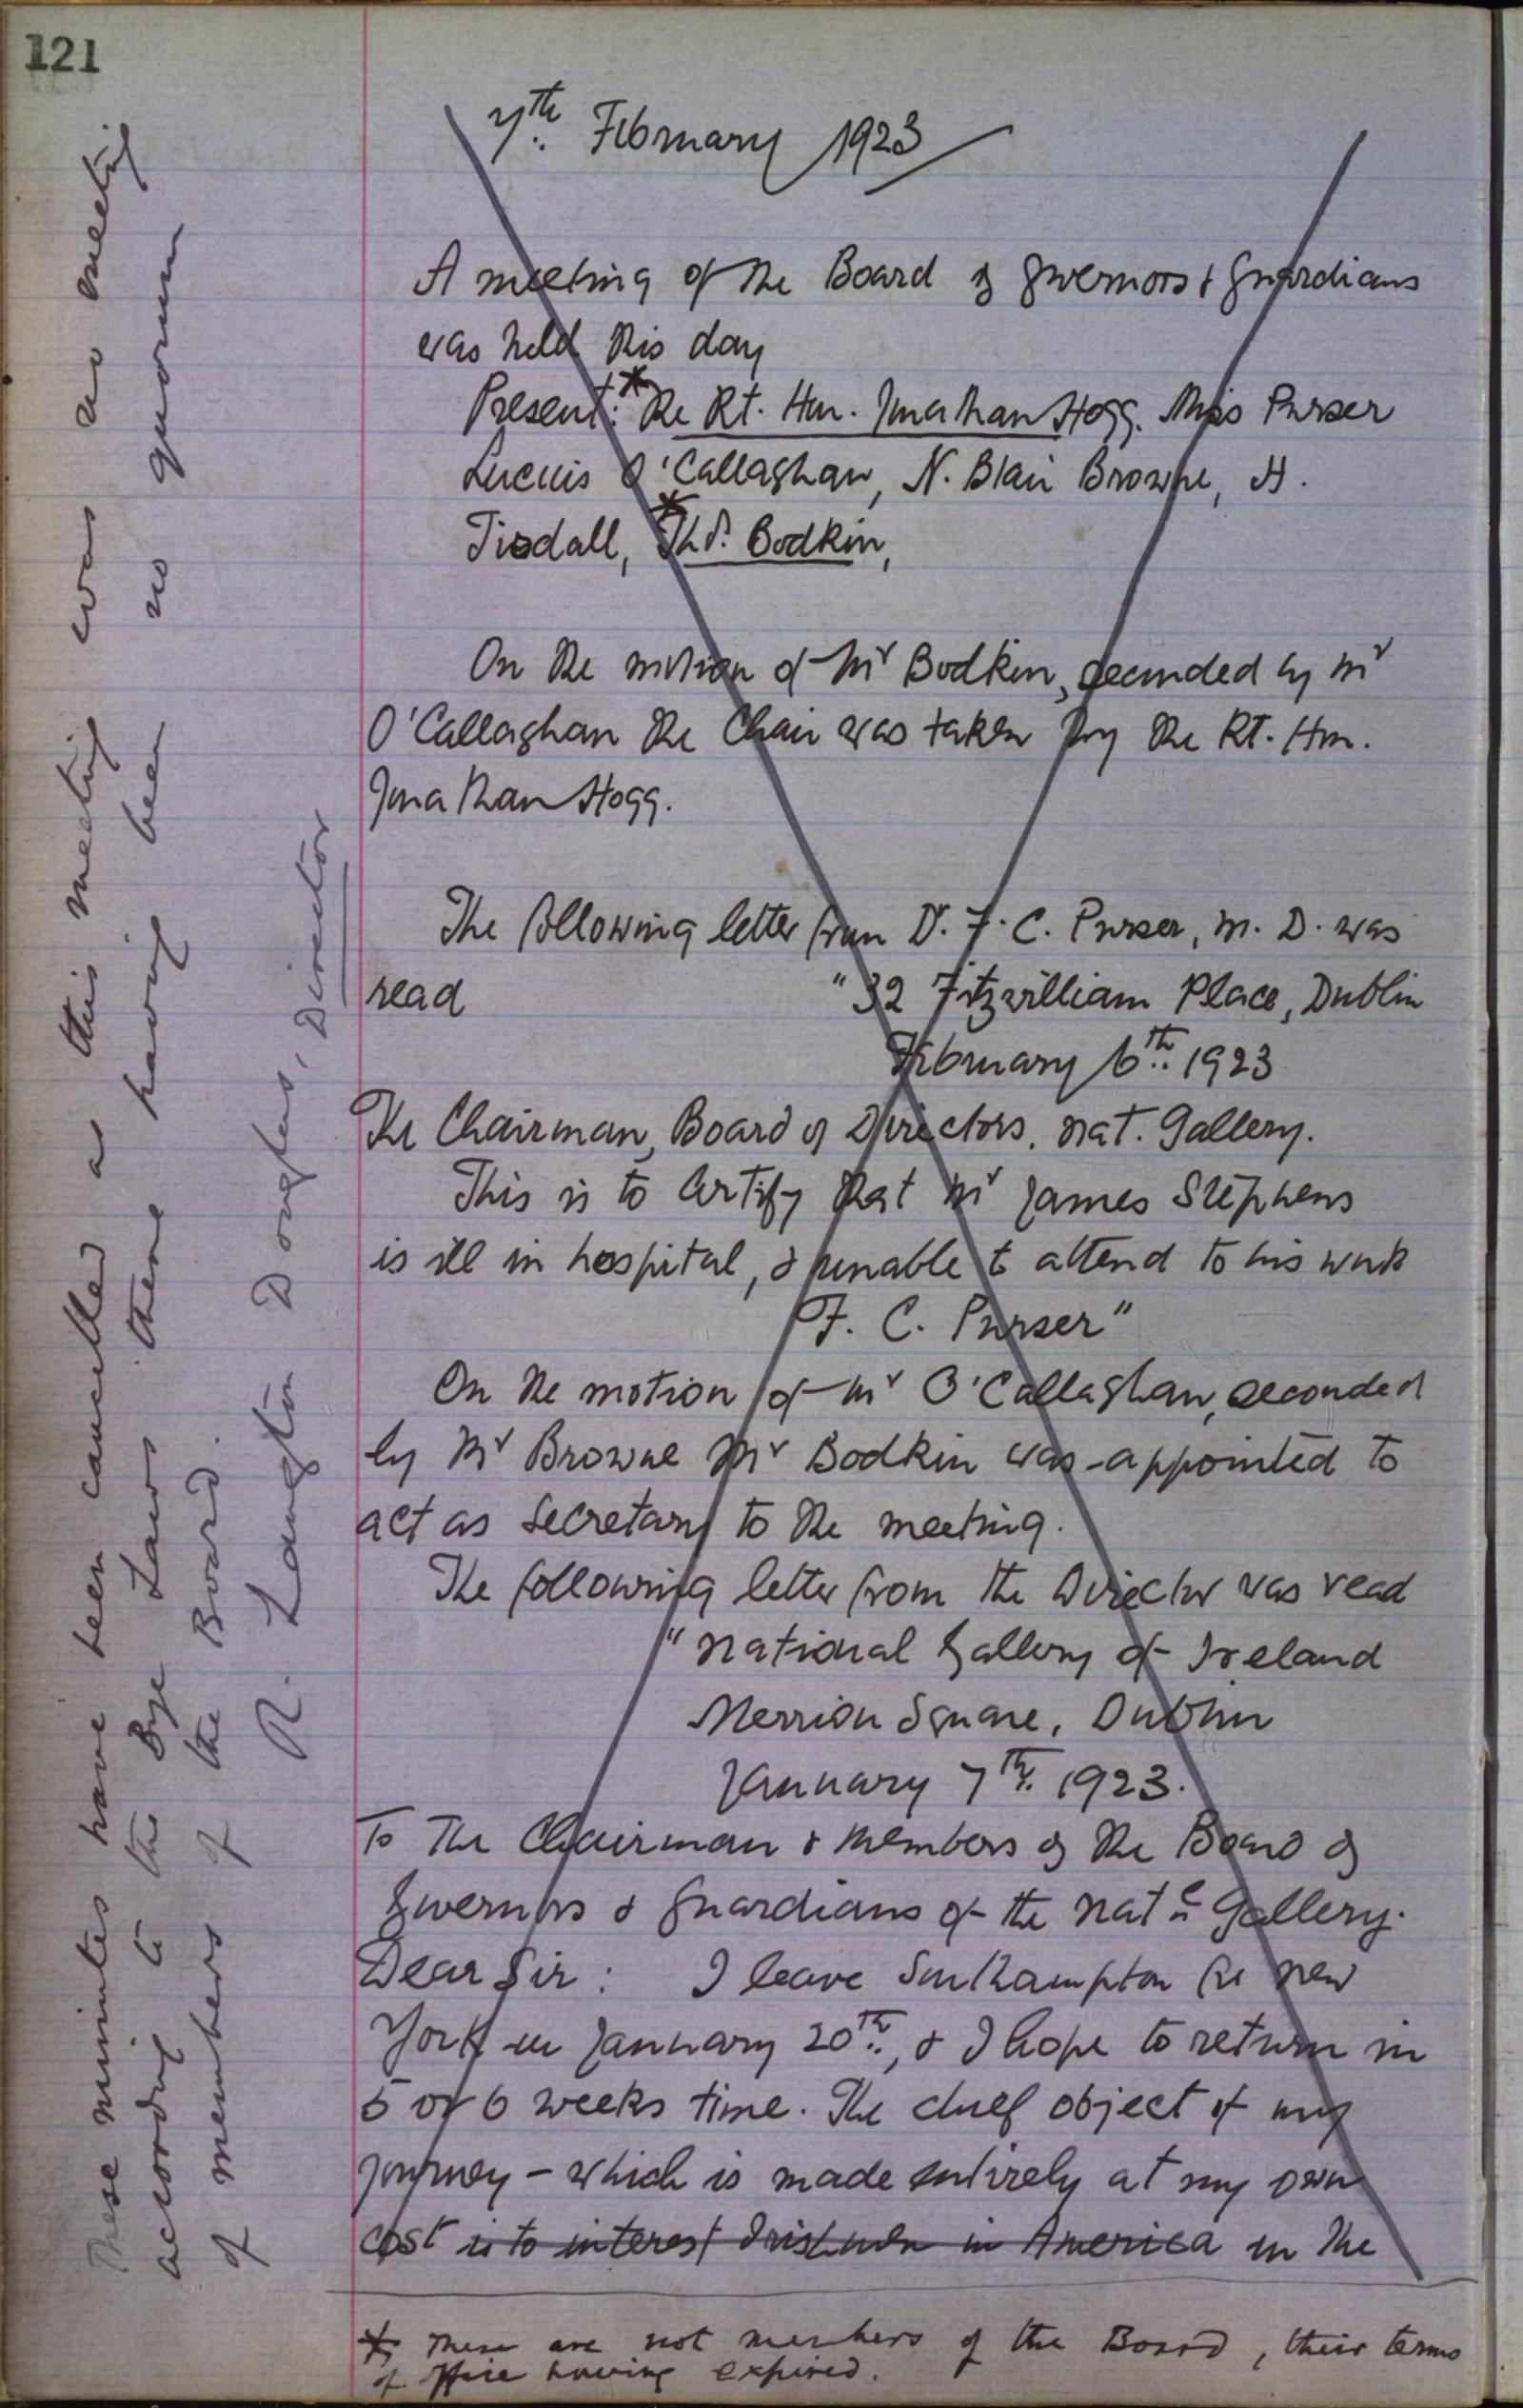 121
7th. February 1923
A meeting of the Board of Governors & Guardians
was held this day
Present: * The Rt. Hon. Jonathan Hogg. Miss Purser
Lucius O'Callaghan, N. Blair Browne, H.
Tisdall, * Thos. Bodkin,
On the motion of Mr Bodkin, seconded by Mr
O'Callaghan the Chair was taken by the Rt. Hon.
Jonathan Hogg.
The following letter from Dr. F. C. Purser, M. D. was
read "32 Fitzwilliam Place, Dublin
February 6th. 1923
The Chairman, Board of Directors, Nat. Gallery.
This is to certify that Mr James Stephens
is ill in hospital, & unable to attend to his work
F. C. Purser"
On the motion of Mr O'Callaghan, seconded
by Mr Browne Mr Bodkin was appointed to
act as Secretary to the meeting.
The following letter from the Director was read
"National Gallery of Ireland
Merrion Square, Dublin
January 7th. 1923.
To The Chairman & Members of the Board of
Governors & Guardians of the Natl Gallery.
Dear Sir: I leave Southampton for New
York on January 20th., & I hope to return in
5 or 6 weeks time. The chief object of my
journey - which is made entirely at my own
cost is to interest Irishmen in America in the
* These are not members of the Board, their terms
of office having expired.
These minutes have been cancelled as this meeting was no meeting
according to the Bye Laws there having been no quorum
of members of the Board.
R. Langton Douglas, Director